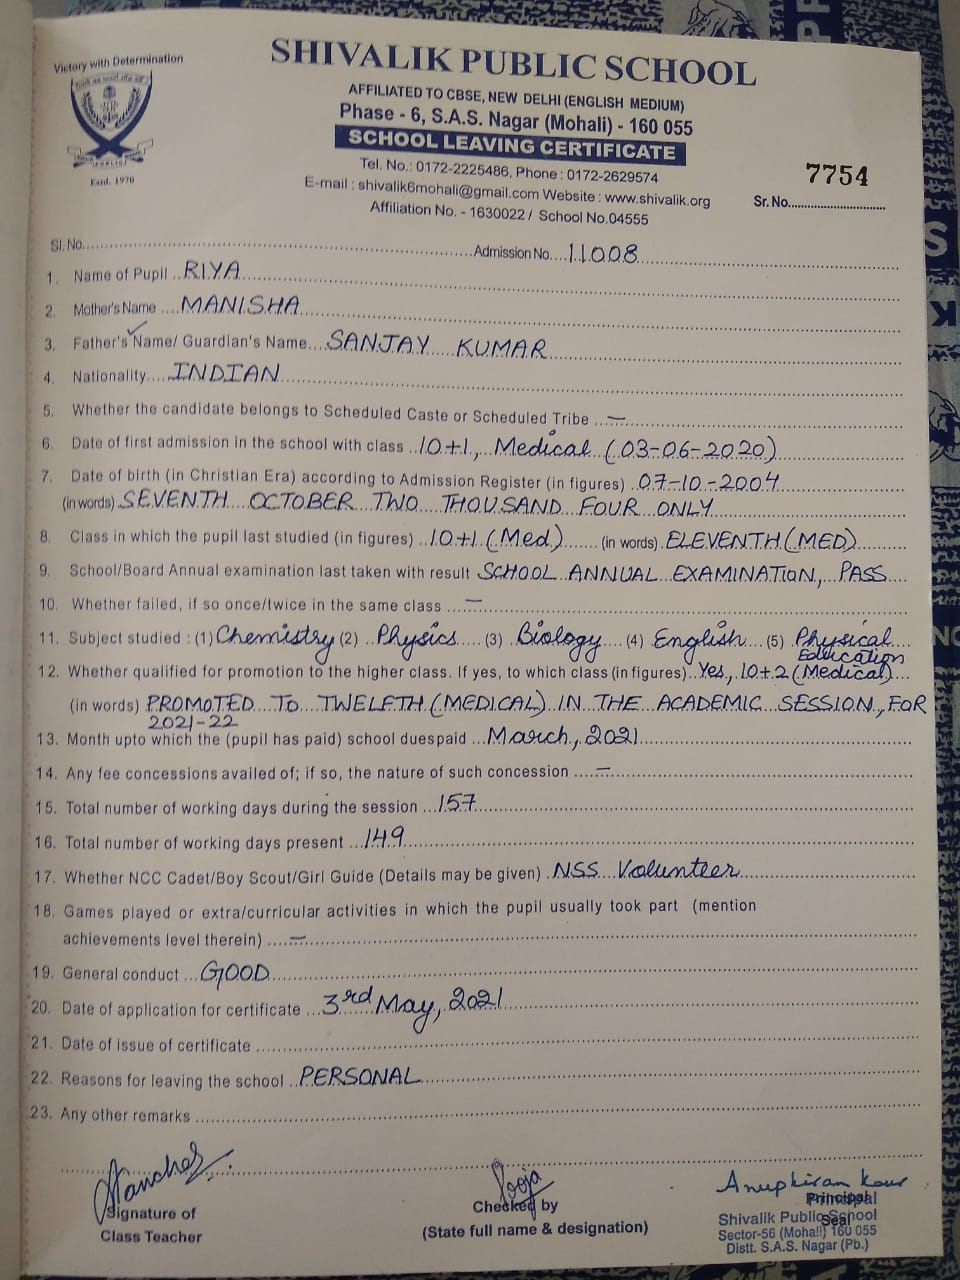 Victory with Determination
SHIVALIK PUBLIC SCHOOL
AFFILIATED TO CBSE, NEW DELHI (ENGLISH MEDIUM)
Phase - 6, S.A.S. Nagar (Mohali) - 160 055
SCHOOL LEAVING CERTIFICATE
Tel. No.: 0172-2225486, Phone : 0172-2629574
E-mail : shivalik6mohali@gmail.com Website : www.shivalik.org
Affiliation No. - 1630022 / School No.04555
Estd. 1970
7754
Sr. No.
Sl. No. Admission No. 11008
1. Name of Pupil RIYA
2. Mother's Name MANISHA
3. Father's Name/ Guardian's Name SANJAY KUMAR
4. Nationality INDIAN
5. Whether the candidate belongs to Scheduled Caste or Scheduled Tribe —
6. Date of first admission in the school with class 10+1, Medical (03-06-2020)
7. Date of birth (in Christian Era) according to Admission Register (in figures) 07-10-2004
(in words) SEVENTH OCTOBER TWO THOUSAND FOUR ONLY
8. Class in which the pupil last studied (in figures) 10+1 (Med) (in words) ELEVENTH (MED)
9. School/Board Annual examination last taken with result SCHOOL ANNUAL EXAMINATION, PASS
10. Whether failed, if so once/twice in the same class —
11. Subject studied : (1) Chemistry (2) Physics (3) Biology (4) English (5) Physical Education
12. Whether qualified for promotion to the higher class. If yes, to which class (in figures) Yes, 10+2 (Medical)
(in words) PROMOTED TO TWELFTH (MEDICAL) IN THE ACADEMIC SESSION, FOR
2021-22
13. Month upto which the (pupil has paid) school duespaid March, 2021
14. Any fee concessions availed of; if so, the nature of such concession —
15. Total number of working days during the session 157
16. Total number of working days present 149
17. Whether NCC Cadet/Boy Scout/Girl Guide (Details may be given) NSS Volunteer
18. Games played or extra/curricular activities in which the pupil usually took part (mention
achievements level therein) —
19. General conduct GOOD
20. Date of application for certificate 3rd May, 2021
21. Date of issue of certificate
22. Reasons for leaving the school PERSONAL
23. Any other remarks
Signature of
Class Teacher
Pooja
Checked by
(State full name & designation)
Anupkiran Kaur
Principal
Seal
Principal
Shivalik Public School
Sector-56 (Mohali) 160 055
Distt. S.A.S. Nagar (Pb.)